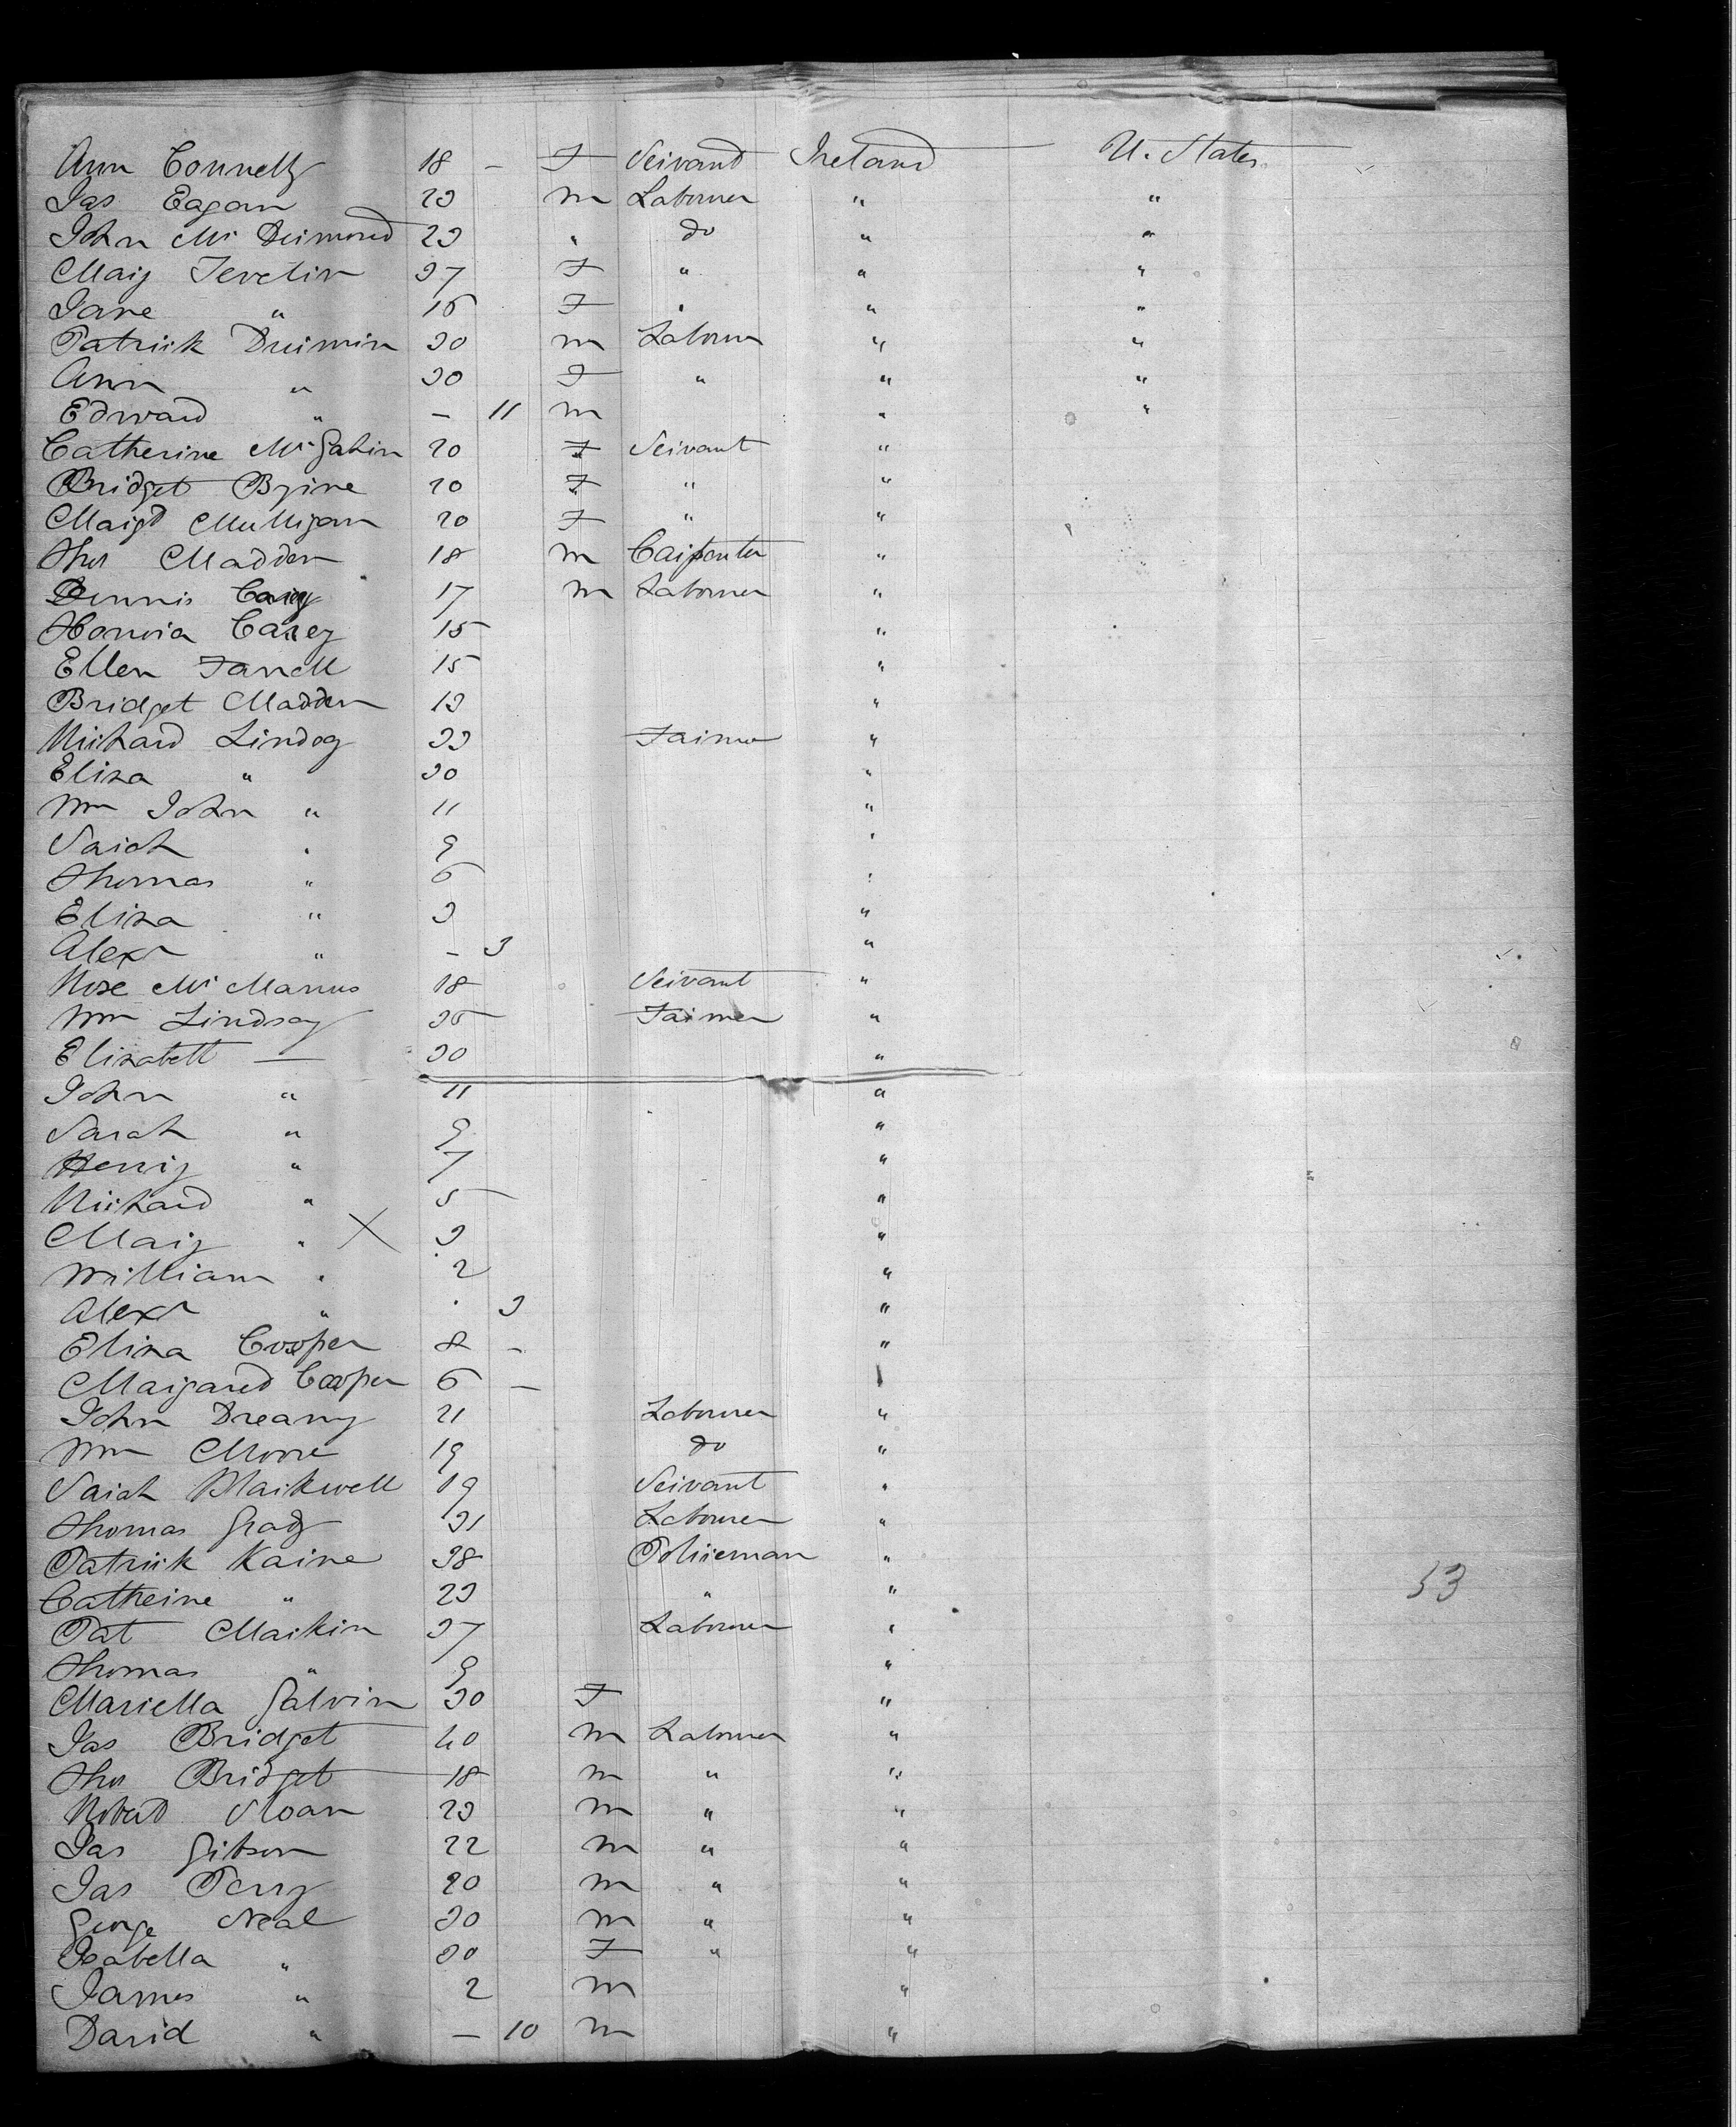 Ann Connelly 18 — F Servant Ireland U. States
Jas Eagan 23 m Labourer " "
John Mc Dermond 23 " do " "
Mary Tevelin 37 F " " "
Jane " 16 F " " "
Patrick Drimin 30 m Labourer " "
Ann " 30 F " " "
Edward " — 11 m " "
Catherine Mc Gahin 20 F Servant "
Bridget Byrne 20 F " "
Margt Mulligan 20 F " "
Thos Madden 18 m Carpenter "
Dennis Carey 17 m Labourer "
Honora Carey 15 "
Ellen Farrell 15 "
Bridget Madden 13 "
Richard Lindsay 33 Farmer "
Eliza " 30 "
Wm John " 11 "
Sarah " 9 "
Thomas " 6 "
Eliza " 3 "
Alexr " — 3 "
Rose Mc Manus 18 Servant "
Wm Lindsay 35 Farmer "
Elizabeth — 30 "
John " 11 "
Sarah " 9 "
Henry " 7 "
Richard " 5 "
Mary " X 3 "
William " 2 "
Alexr " 3 "
Eliza Cooper 8 — "
Margaret Cooper 6 — "
John Dreany 21 Labourer "
Wm Moore 19 do "
Sarah Blackwell 19 Servant "
Thomas Grady 31 Labourer "
Patrick Kaine 38 Policeman "
Catherine " 23 " "
Pat Markin 37 Labourer "
Thomas " 9 "
Mariella Galvin 30 F "
Jas Bridget 40 m Labourer "
Thos Bridget 18 m " "
Robert Sloan 23 m " "
Jas Gibson 22 m " "
Jas Perry 20 m " "
George Neal 30 m " "
Isabella " 30 F " "
James " 2 m "
David " — 10 m "
53